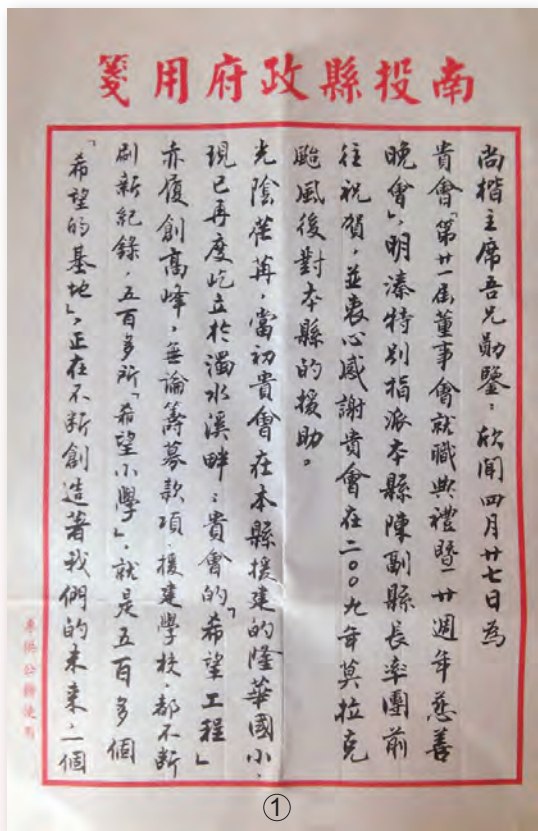 南投縣政府用箋
尚楷主席吾兄勛鑒：欣聞四月廿七日為
貴會「第廿一屆董事會就職典禮暨廿週年慈善
晚會」，明溱特別指派本縣陳副縣長率團前
往祝賀，並衷心感謝貴會在二〇〇九年莫拉克
颱風後對本縣的援助。
光陰荏苒，當初貴會在本縣援建的隆華國小，
現已再度屹立於濁水溪畔；貴會的「希望工程」
亦履創高峰，無論籌募款項、援建學校，都不斷
刷新紀錄，五百多所「希望小學」，就是五百多個
「希望的基地」，正在不斷創造著我們的未來；個
專供公務使用
①